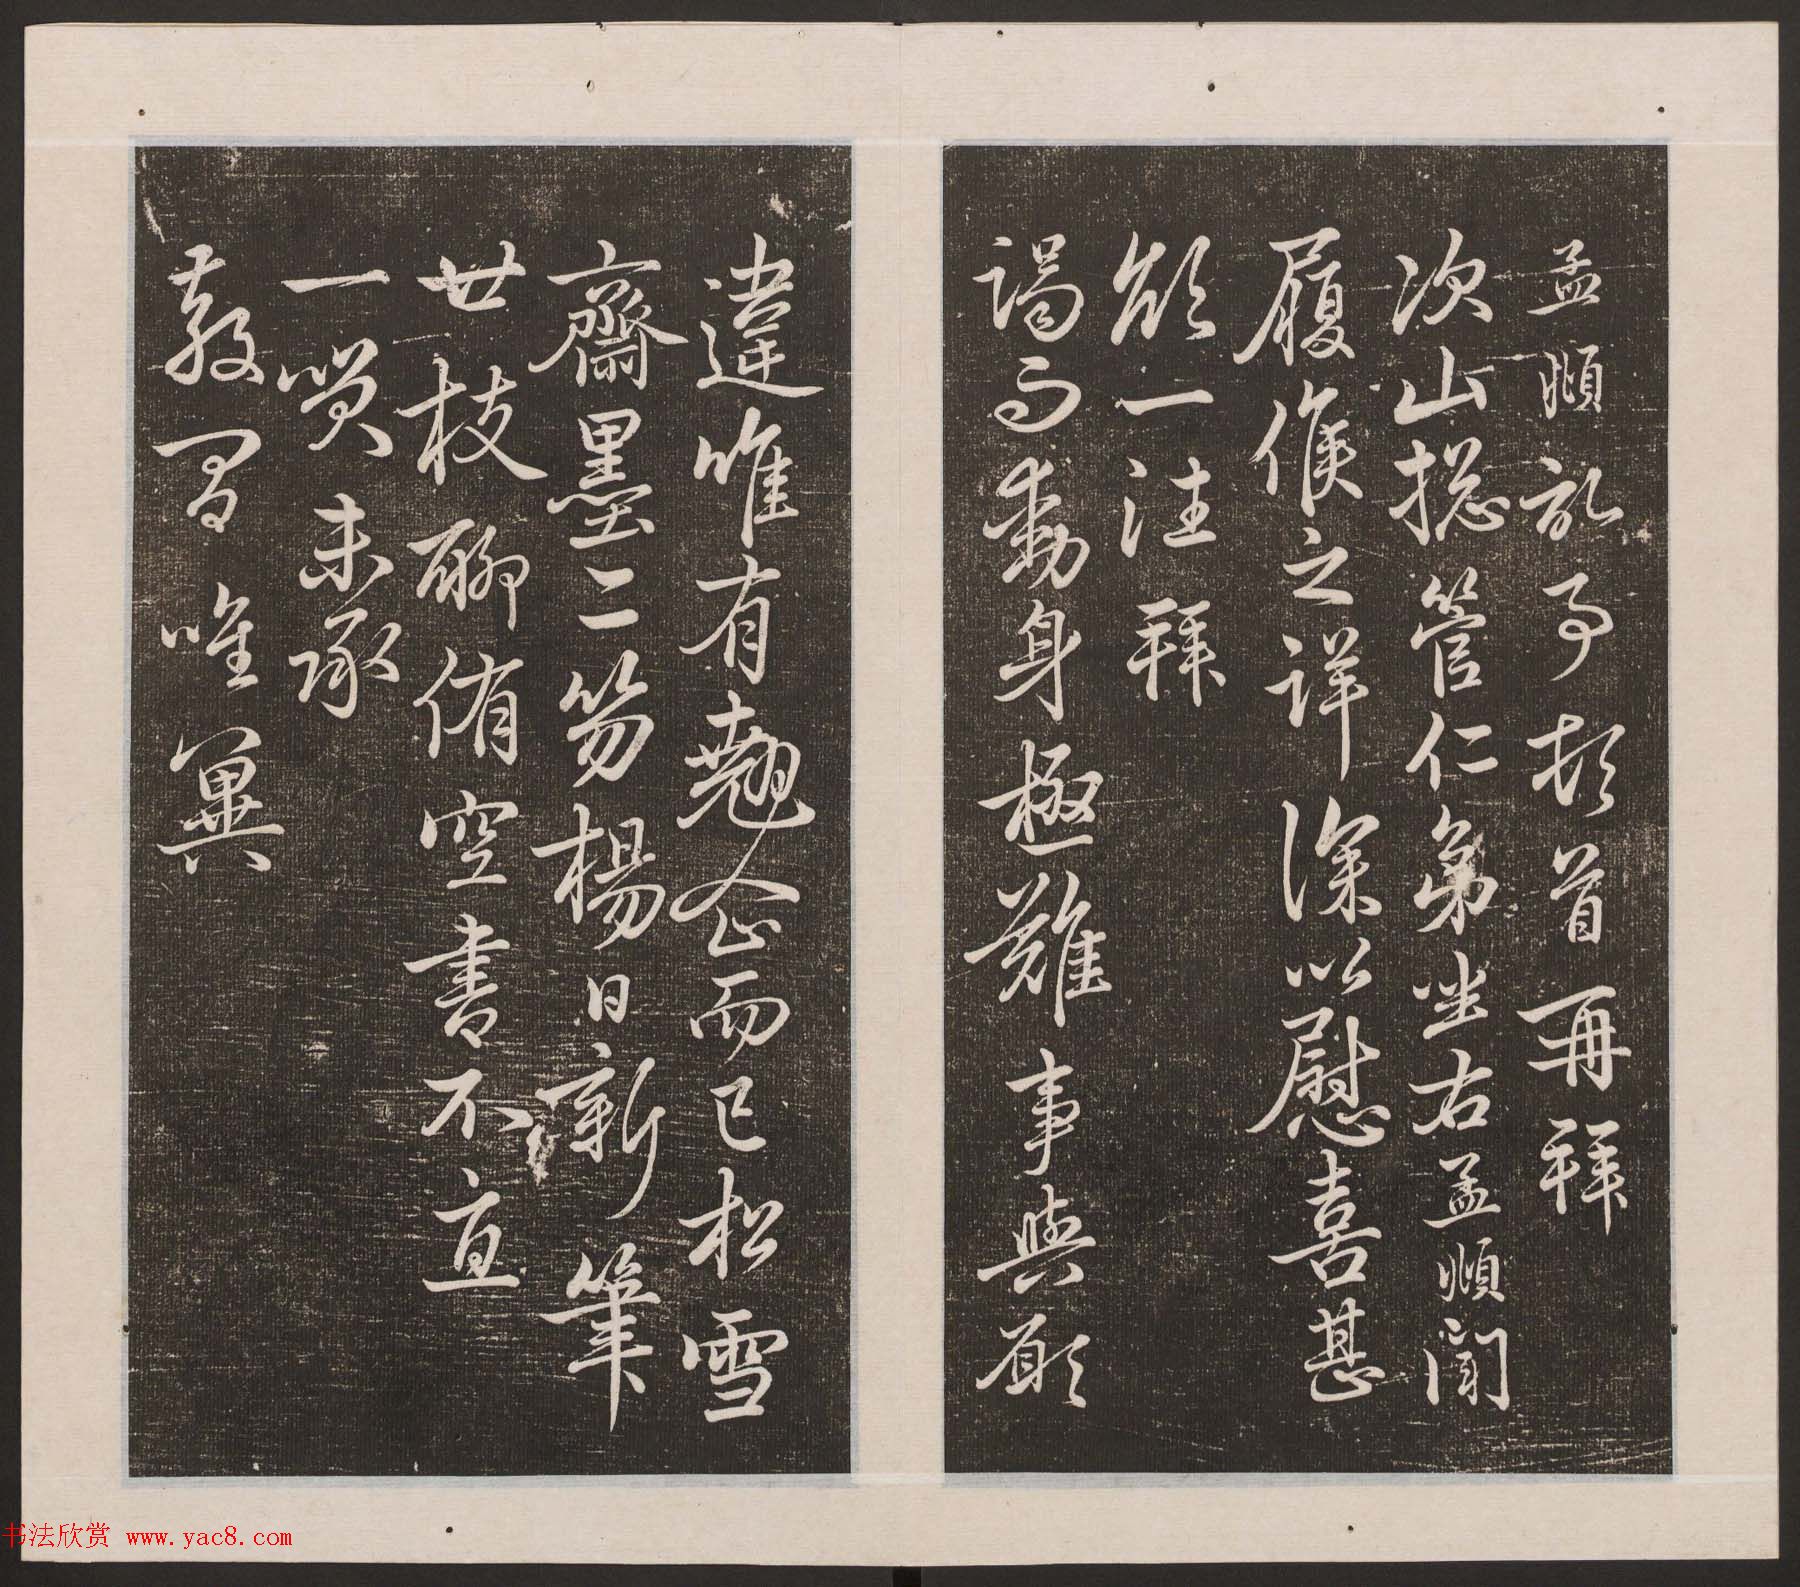 孟頫記事頓首再拜
次山揔管仁弟坐右孟頫聞
履候之詳深以慰喜甚
欲一往拜
謁而動身極難事與願
違唯有翹企而已松雪
齋墨二笏楊日新筆
廿枝聊侑空書不直
一笑未承
教間唯冀
书法欣赏 www.yac8.com